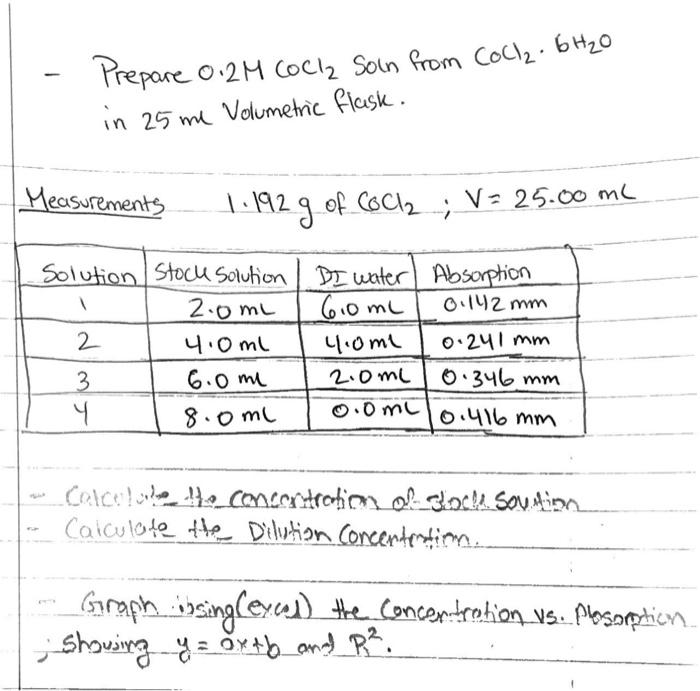 - Prepare 0.2M CoCl2 Soln from CoCl2 · 6H2O
in 25 mL Volumetric flask.
Measurements 1.192 g of CoCl2 ; V = 25.00 mL
Solution | Stock Solution | DI water | Absorption
1 | 2.0 mL | 6.0 mL | 0.142 mm
2 | 4.0 mL | 4.0 mL | 0.241 mm
3 | 6.0 mL | 2.0 mL | 0.346 mm
4 | 8.0 mL | 0.0 mL | 0.416 mm
- Calculate the concentration of stock soution
- Calculate the Dilution Concentration.
- Graph using (excel) the Concentration vs. Absorption
; showing y = ax+b and R².